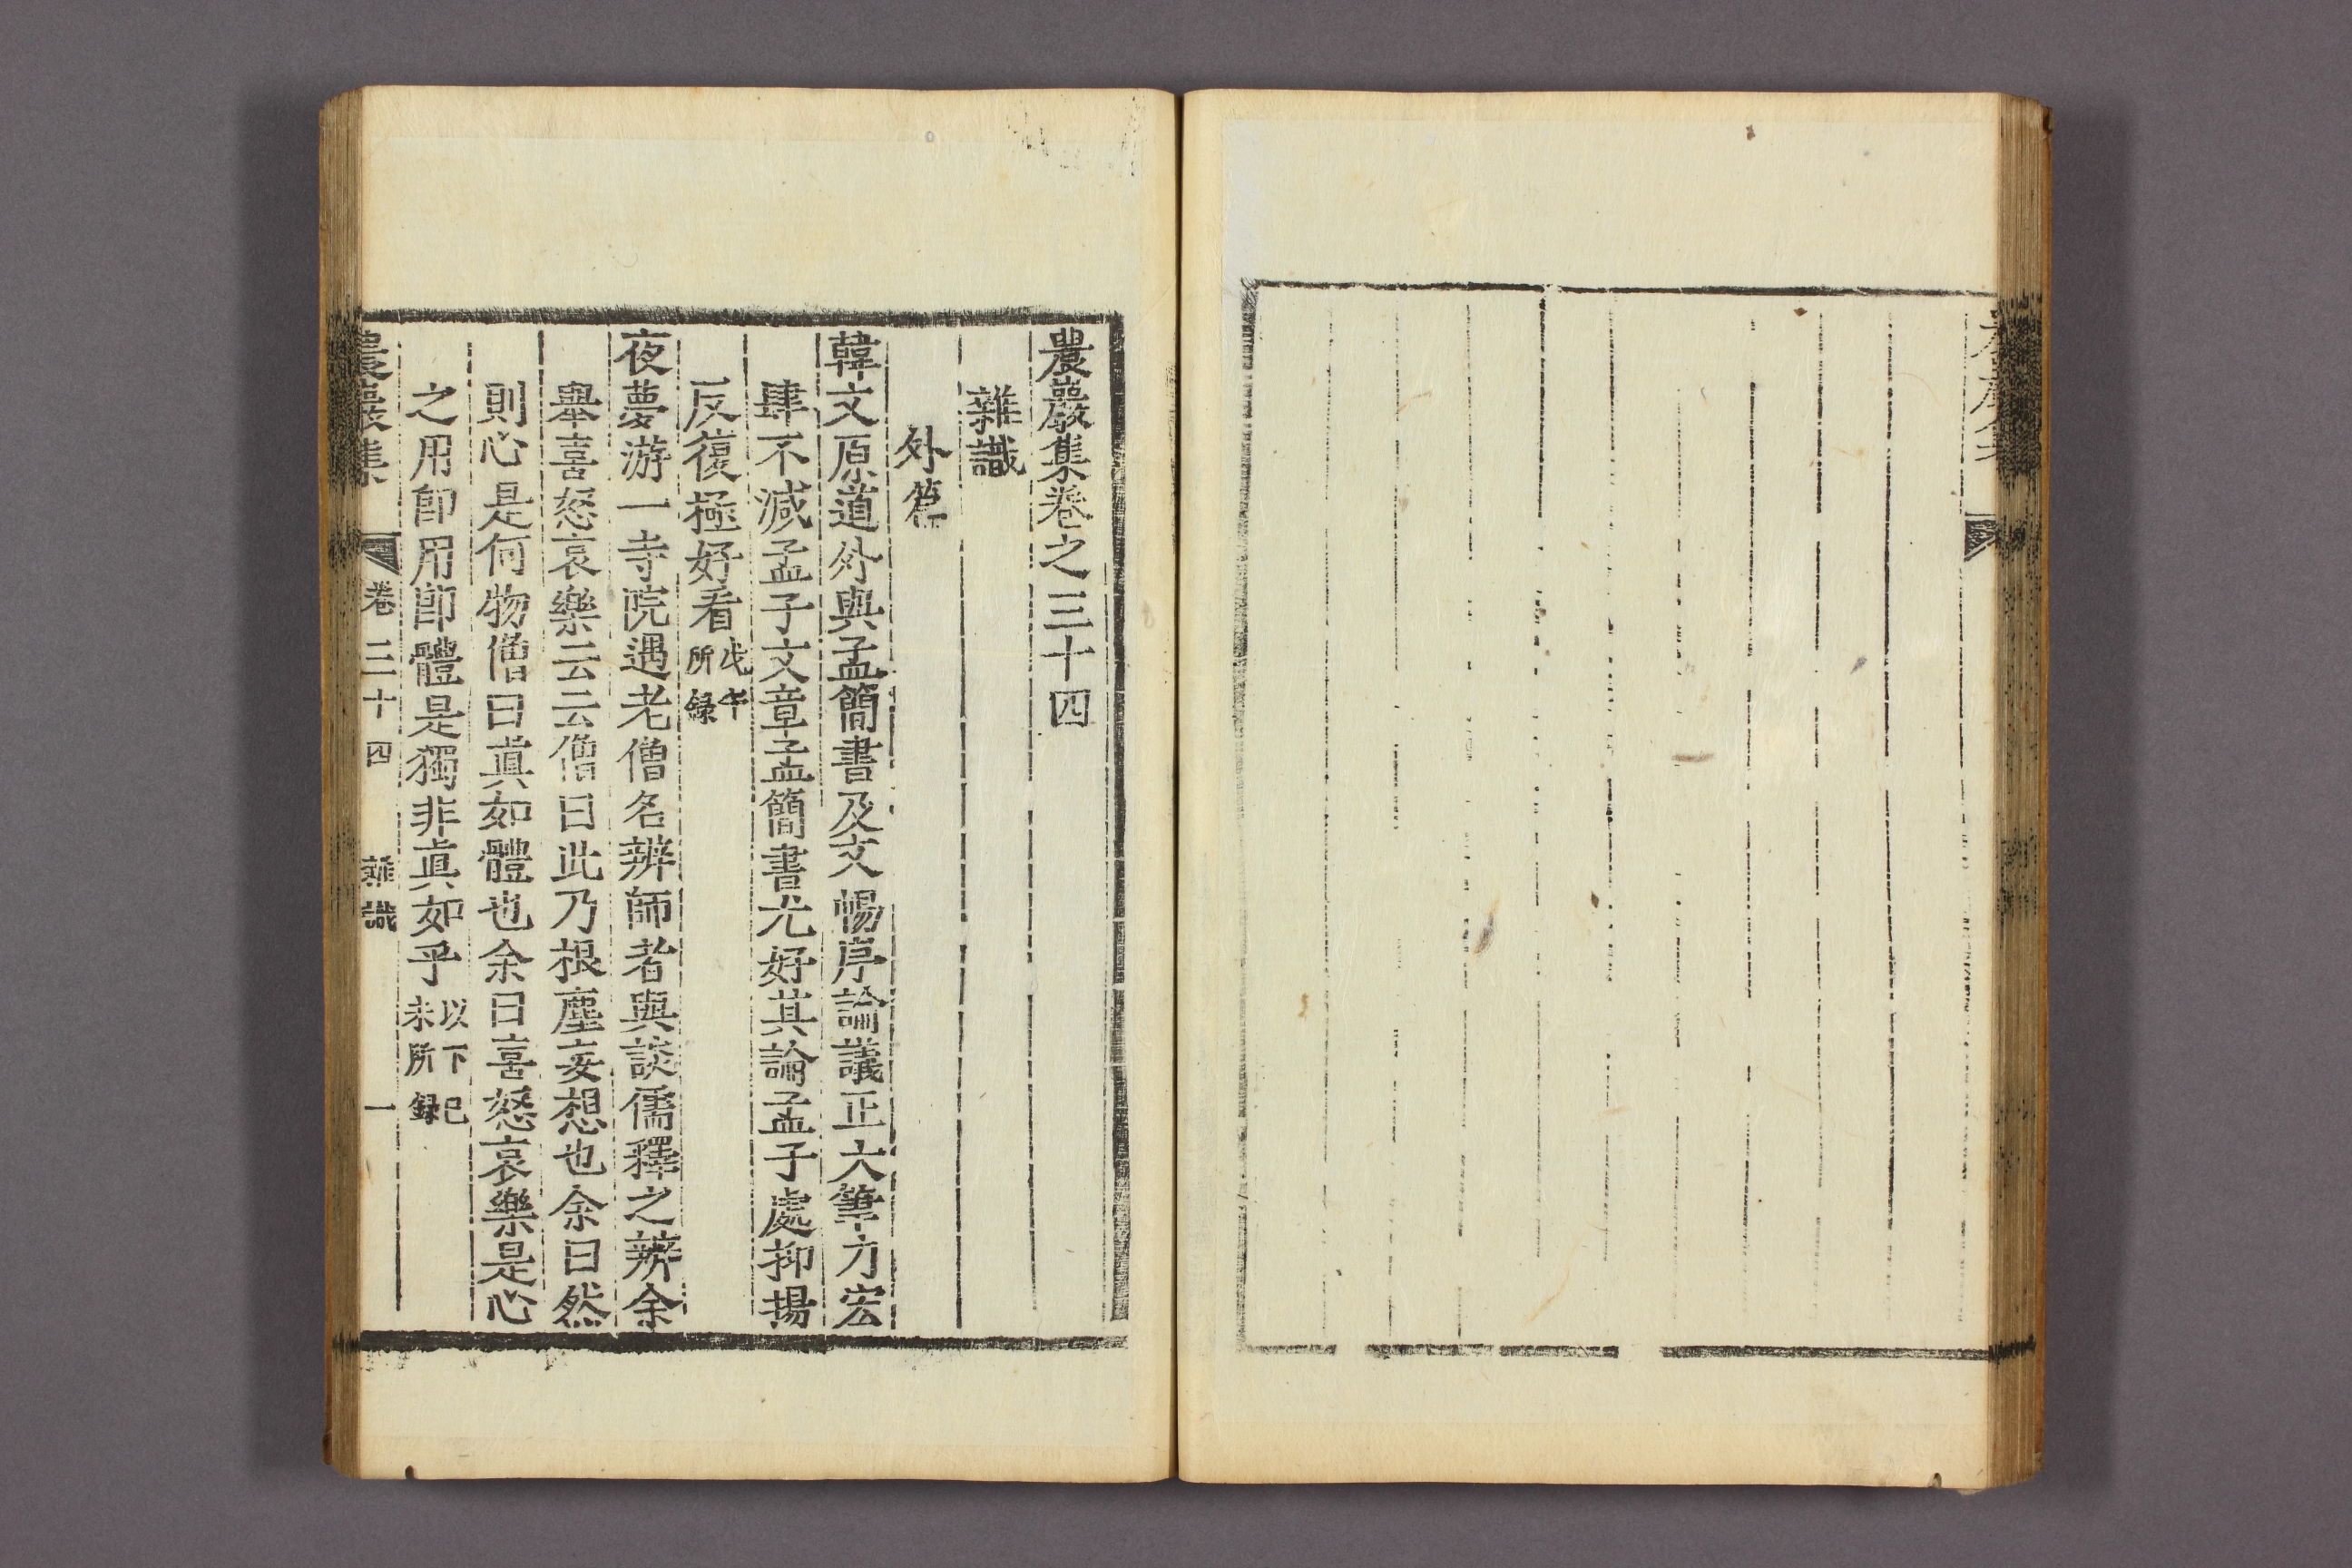 農巖集卷之三十四
雜識
外篇
韓文原道外與孟簡書及文暢序論議正大筆力宏
肆不減孟子文章孟簡書尤好其論孟子處抑揚
反復極好看戊午所錄
夜夢游一寺院遇老僧名辨師者與談儒釋之辨余
舉喜怒哀樂云云僧曰此乃根塵妄想也余曰然
則心是何物僧曰眞如體也余曰喜怒哀樂是心
之用卽用卽體是獨非眞如乎以下己未所錄
農巖集 卷三十四 雜識 一